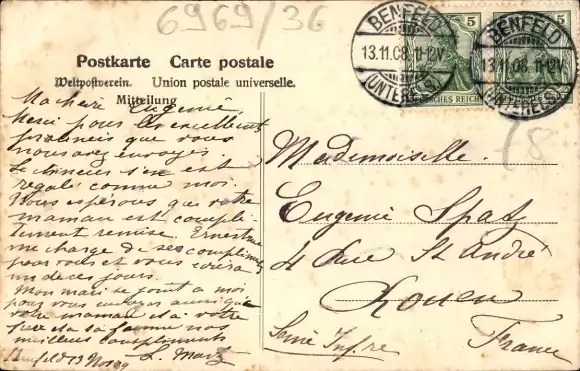 6969/36
BENFELD
13.11.08. 11-12V
(UNTERELS.)
5
DEUTSCHES REICH
BENFELD
13.11.08. 11-12V
(UNTERELS.)
5
Postkarte Carte postale
Weltpostverein. Union postale universelle.
Mitteilung
Ma chère Eugénie,
Merci pour les excellents
que vous
nous avez envoyés.
s'en est
régalé comme moi.
Nous espérons que votre
maman est complè-
tement remise. Ernestine
me charge de ses compliments
pour vous et vous écrira
un de ces jours.
Mon mari se joint à moi
pour vous envoyer ainsi que
votre maman et à votre
frère et sa femme nos
meilleurs compliments
Benfeld 13 Nov
Mademoiselle.
Eugénie Spatz
4 Rue St André
Rouen
Seine Infre
France